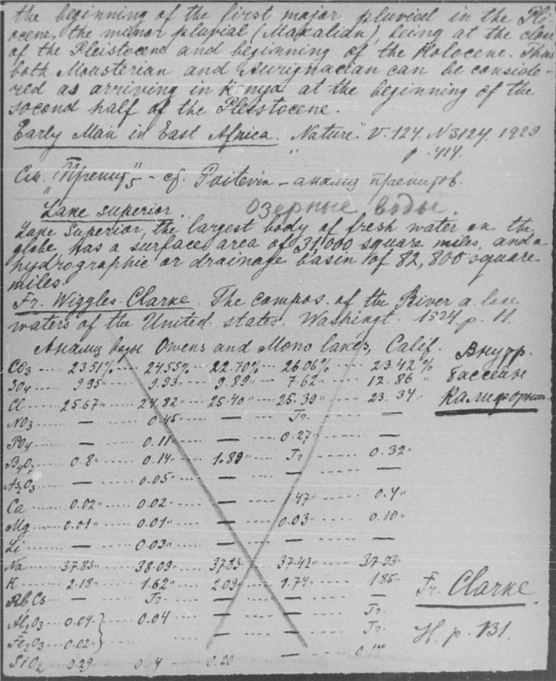 the beginning of the first major pluvial in the Plei-
ocene, the minor pluvial (Makalian), being at the close
of the Pleistocene and beginning of the Holocene. Thus
both Mousterian and Aurignacian can be conside-
red as arriving in Kenya at the beginning of the
second half of the Pleistocene.
Early Man in East Africa. "Nature" V. 124, N 3124 1929
p. 414.
См. "Прениц" - cf. Poitevin - анализ
Lake Superior. Озерные воды.
Lake Superior, the largest body of fresh water on the
globe has a surface area of 31000 square miles, and a
hydrographic or drainage basin of 82,800 square
miles
Fr. Wiggles. Clarke. The compos. of the River a. lake
waters of the United States. Washingt. 1924. p. 11.
Анализ воды Owens and Mono lakes, Calif. Внутр.
CO3 23.51% 24.55% 22.70% 26.06% 23.42% бассейн
SO4 9.95 9.93 9.89 7.62 12.86
Cl 25.67 24.82 25.40 25.39 23.34 Калифорнии
NO3 — 0.45 — Tr. —
PO4 — 0.11 — 0.27 —
B4O7 0.8 0.14 1.89 Tr. 0.32
As2O3 — 0.05 — — —
Ca 0.02 0.02 — 0.4
Mg 0.01 0.01 — 0.03 0.10
Li — 0.03 — — —
Na 37.83 38.09 37.93 37.42 37.93
K 2.18 1.62 2.09 1.74 1.85 Fr. Clarke
Rb Cs — Tr. — — —
Al2O3 0.04 } 0.04 — — Tr. H. p. 131.
Fe2O3 0.02 } — — Tr.
SiO2 0.29 0.20